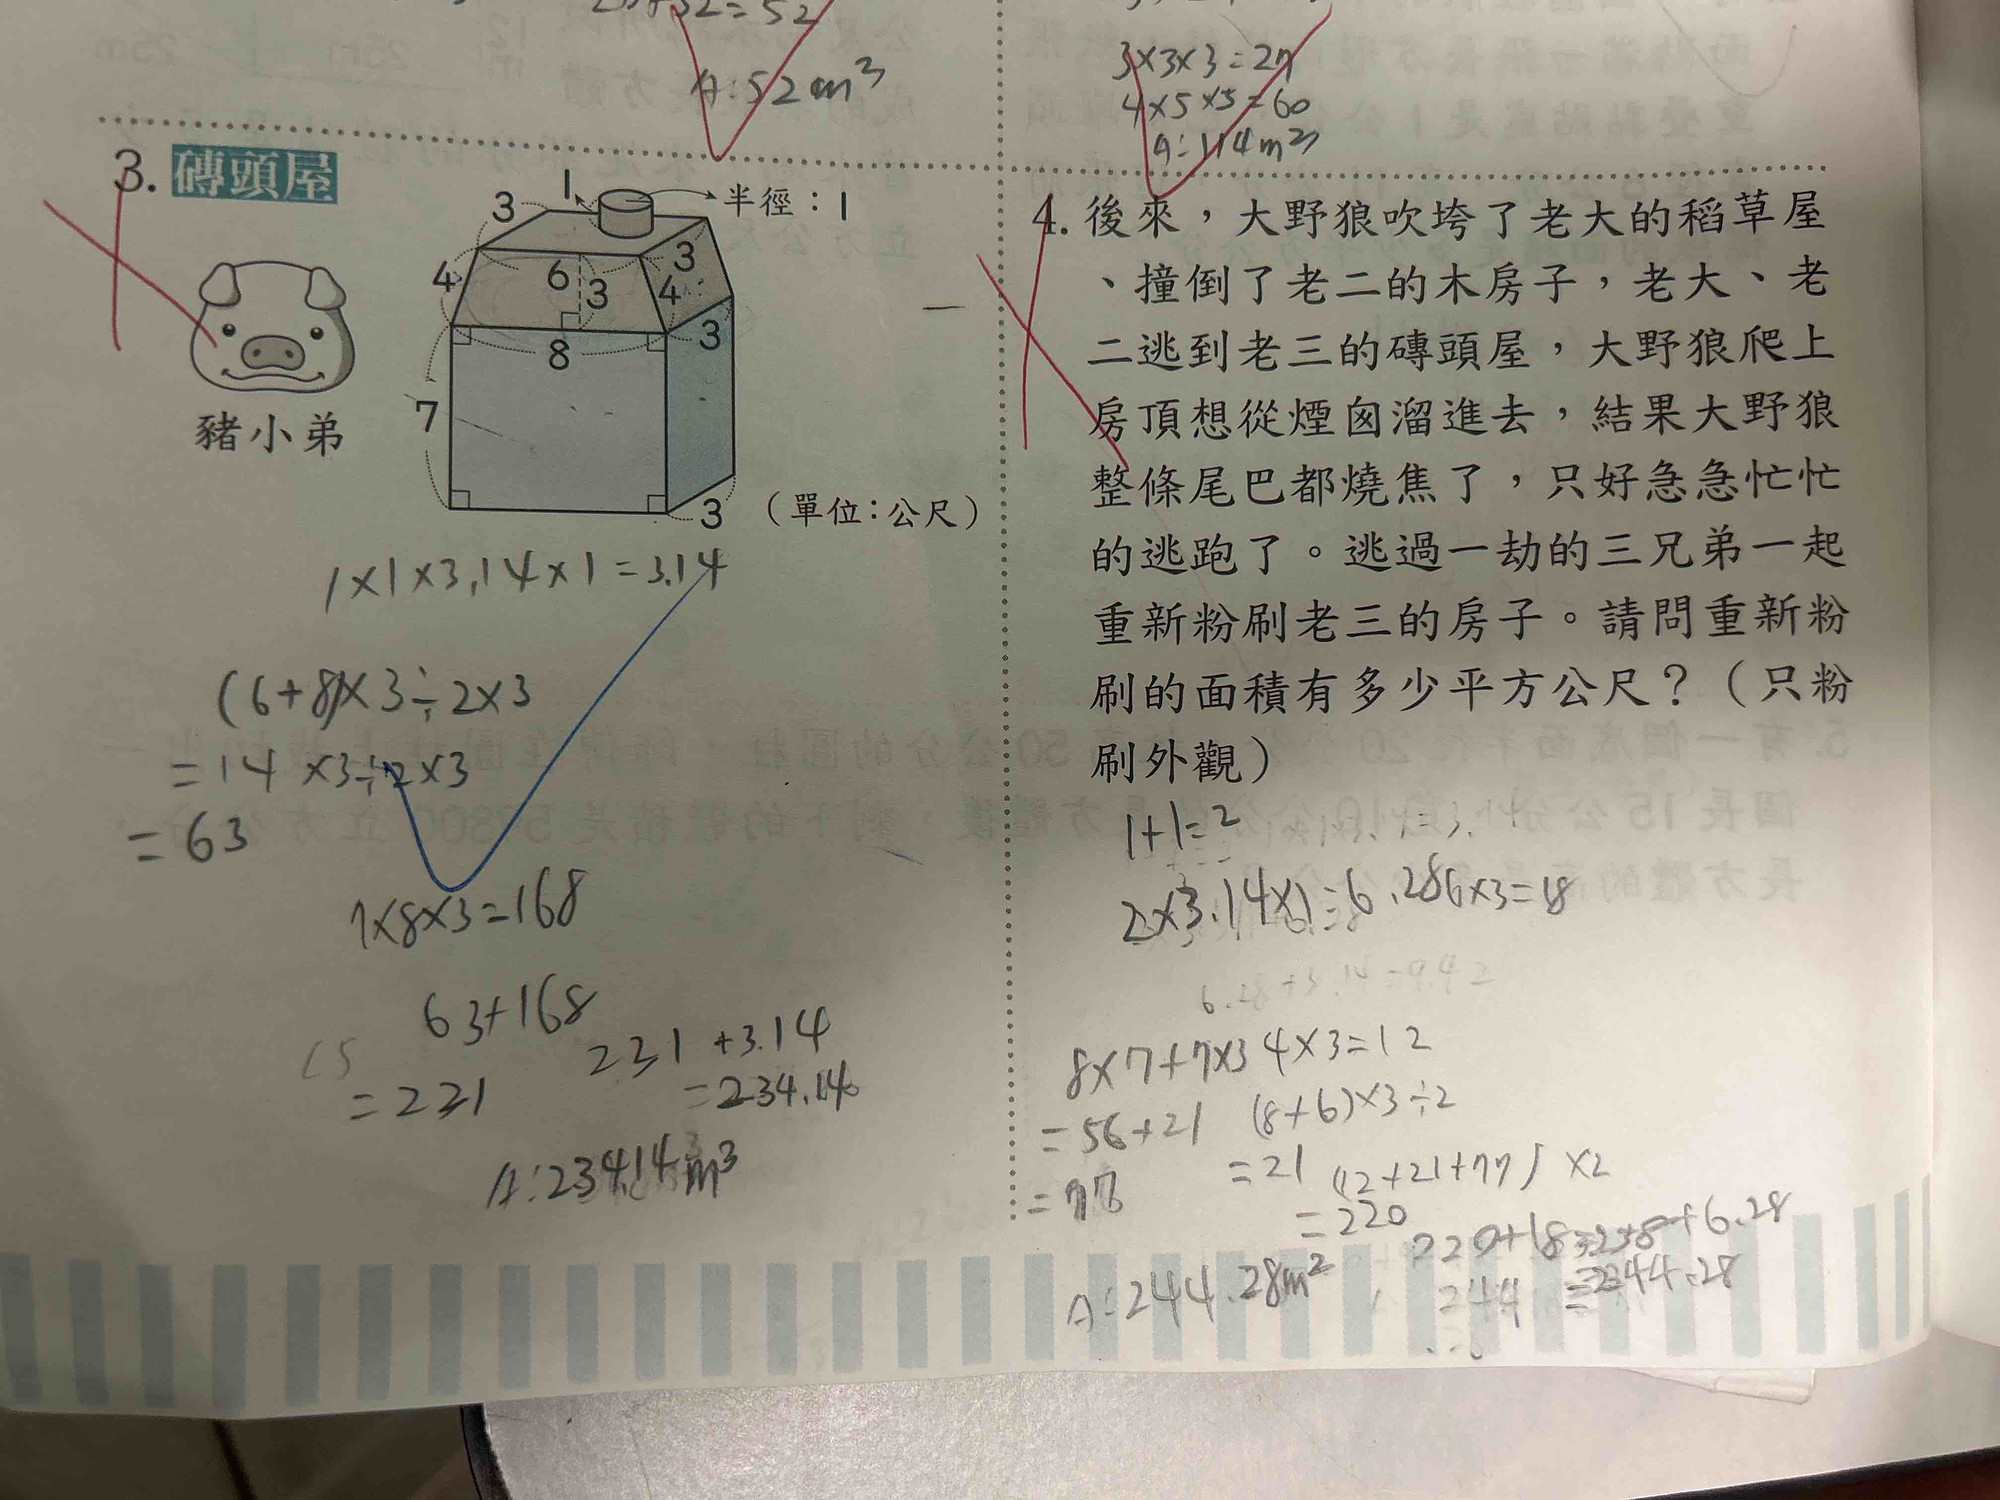 A:52m³
3×3×3=27
4×5×3=60
A:114m³
3. 磚頭屋
豬小弟
3
1
半徑:1
4
6
3
3
4
8
3
7
3
(單位:公尺)
1×1×3.14×1=3.14
(6+8)×3÷2×3
=14×3÷2×3
=63
7×8×3=168
63+168
=231
231+3.14
=234.14
A:234.14m³
4. 後來,大野狼吹垮了老大的稻草屋
、撞倒了老二的木房子,老大、老
二逃到老三的磚頭屋,大野狼爬上
房頂想從煙囪溜進去,結果大野狼
整條尾巴都燒焦了,只好急急忙忙
的逃跑了。逃過一劫的三兄弟一起
重新粉刷老三的房子。請問重新粉
刷的面積有多少平方公尺?(只粉
刷外觀)
1+1=2
2×3.14×1=6.28 6×3=18
6.28+3.14=9.42
8×7+7×3 4×3=12
=56+21 (8+6)×3÷2
=77 =21 (12+21+77)×2
=220
220+18=238+6.28
=244.28
A:244.28m²